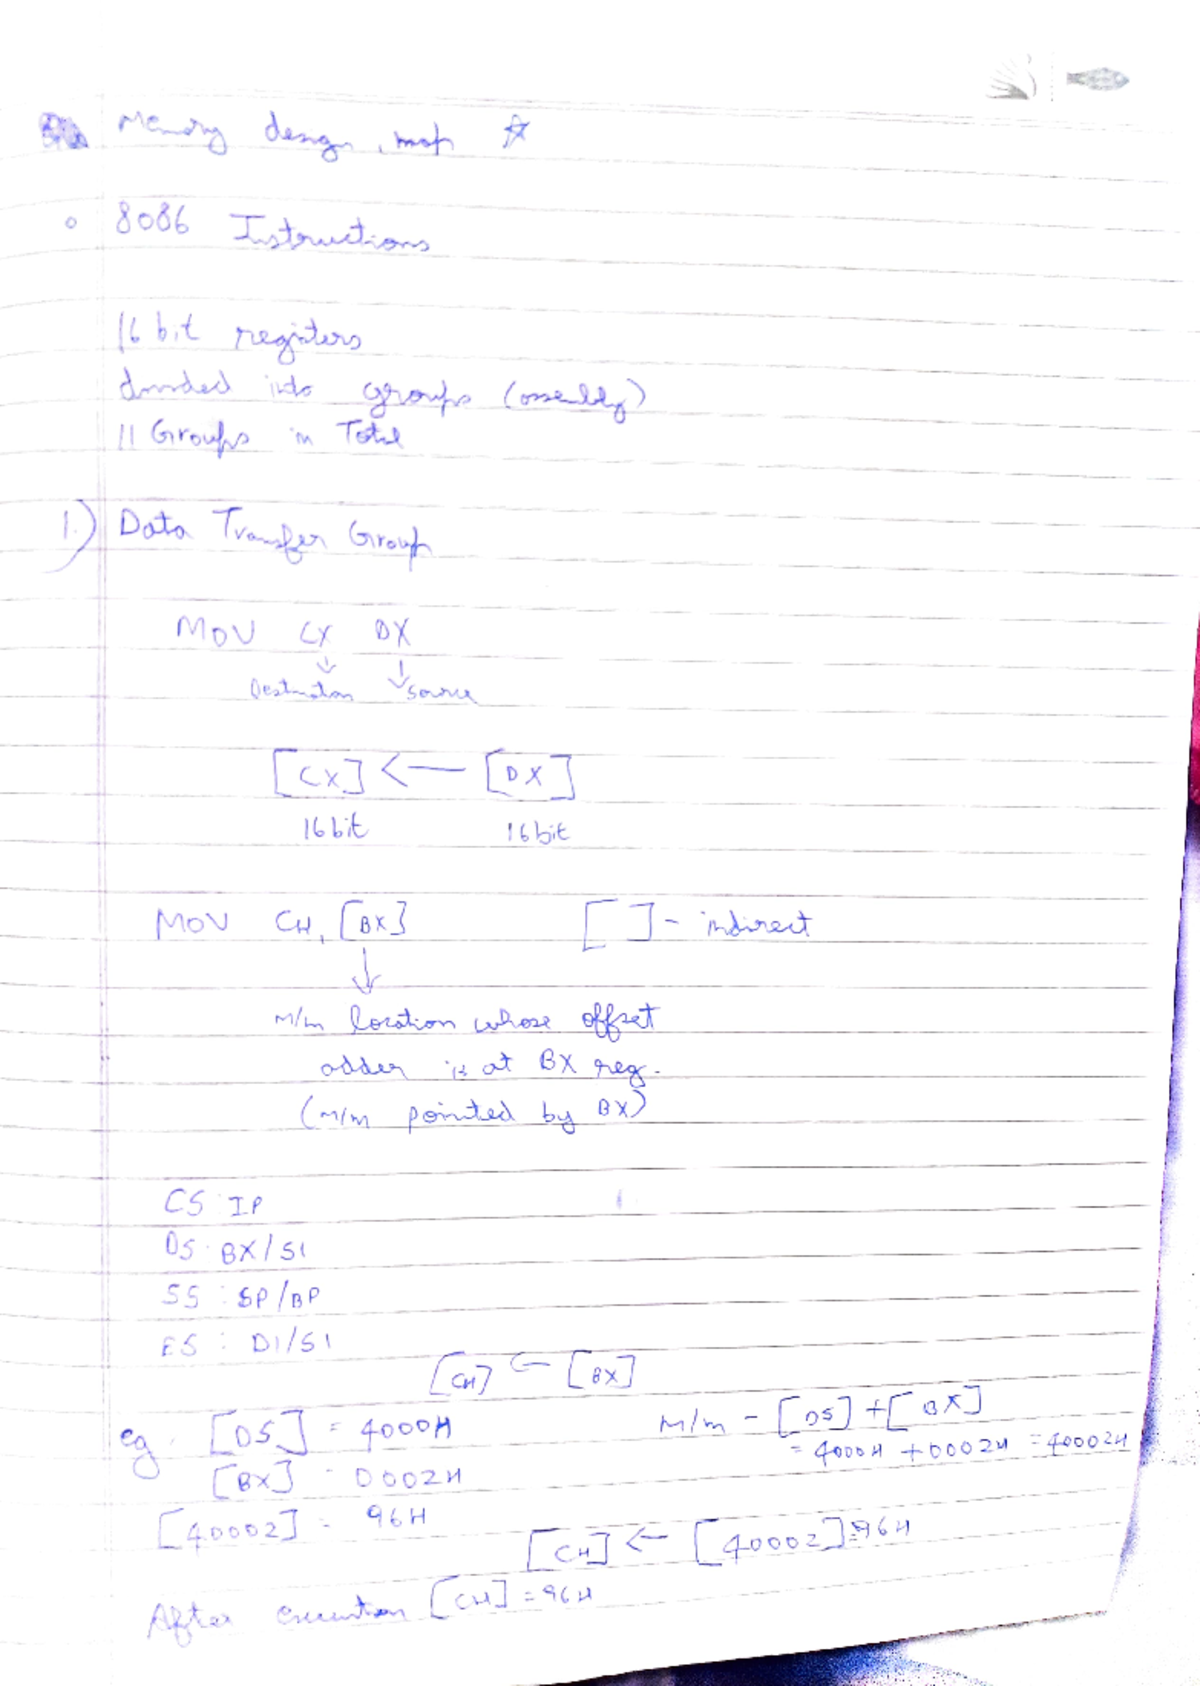 Memory design, map ☆
8086 Instructions
16 bit registers
divided into groups (assembly)
11 Groups in Total
1.) Data Transfer Group
MOV CX DX
↓ ↓
Destination Source
[CX] ← [DX]
16 bit 16 bit
MOV CH, [BX] [ ] - indirect
↓
M/m location whose offset
adder is at BX reg.
(M/m pointed by BX)
CS : IP
DS : BX/SI
SS : SP/BP
ES : DI/SI
[CH] ← [BX]
eg. [DS] = 4000H M/m - [DS] + [BX]
= 4000H + 0002H = 40002H
[BX] - 0002H
[40002] - 96H
[CH] ← [40002] = 96H
After execution [CH] = 96H